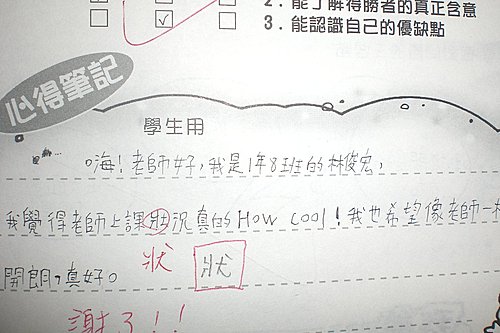 2. 能了解得勝者的真正含意
3. 能認識自己的優缺點
心得筆記
學生用
嗨!老師好,我是1年8班的林俊宏,
我覺得老師上課狀況真的How cool!我也希望像老師一樣
開朗,真好。
狀 狀
謝了!!